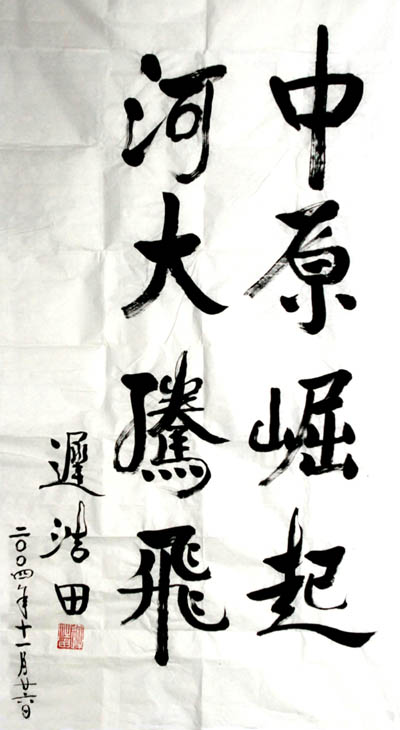 中原崛起
河大騰飛
遲浩田
二〇〇四年十一月廿六日